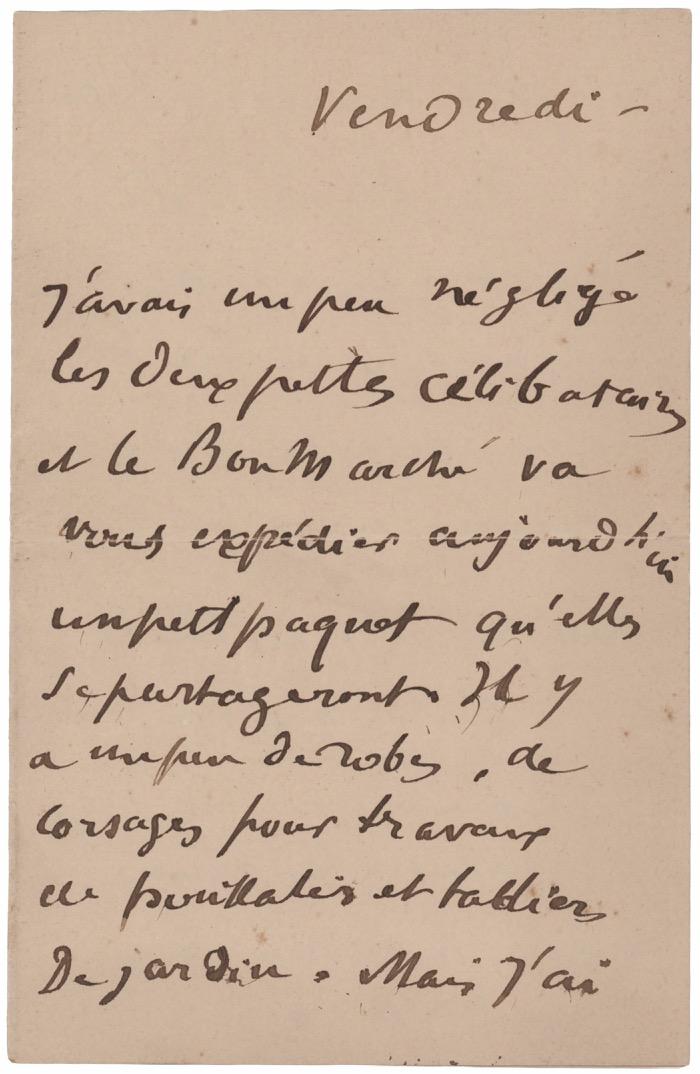 Vendredi -
J'avais un peu négligé
les deux petites célibataires
et le Bon Marché va
vous expédier aujourd'hui
un petit paquet qu'elles
se partageront. Il y
a un peu de robes, de
corsages pour travaux
de poulailler et tabliers
De jardin. Mais j'ai